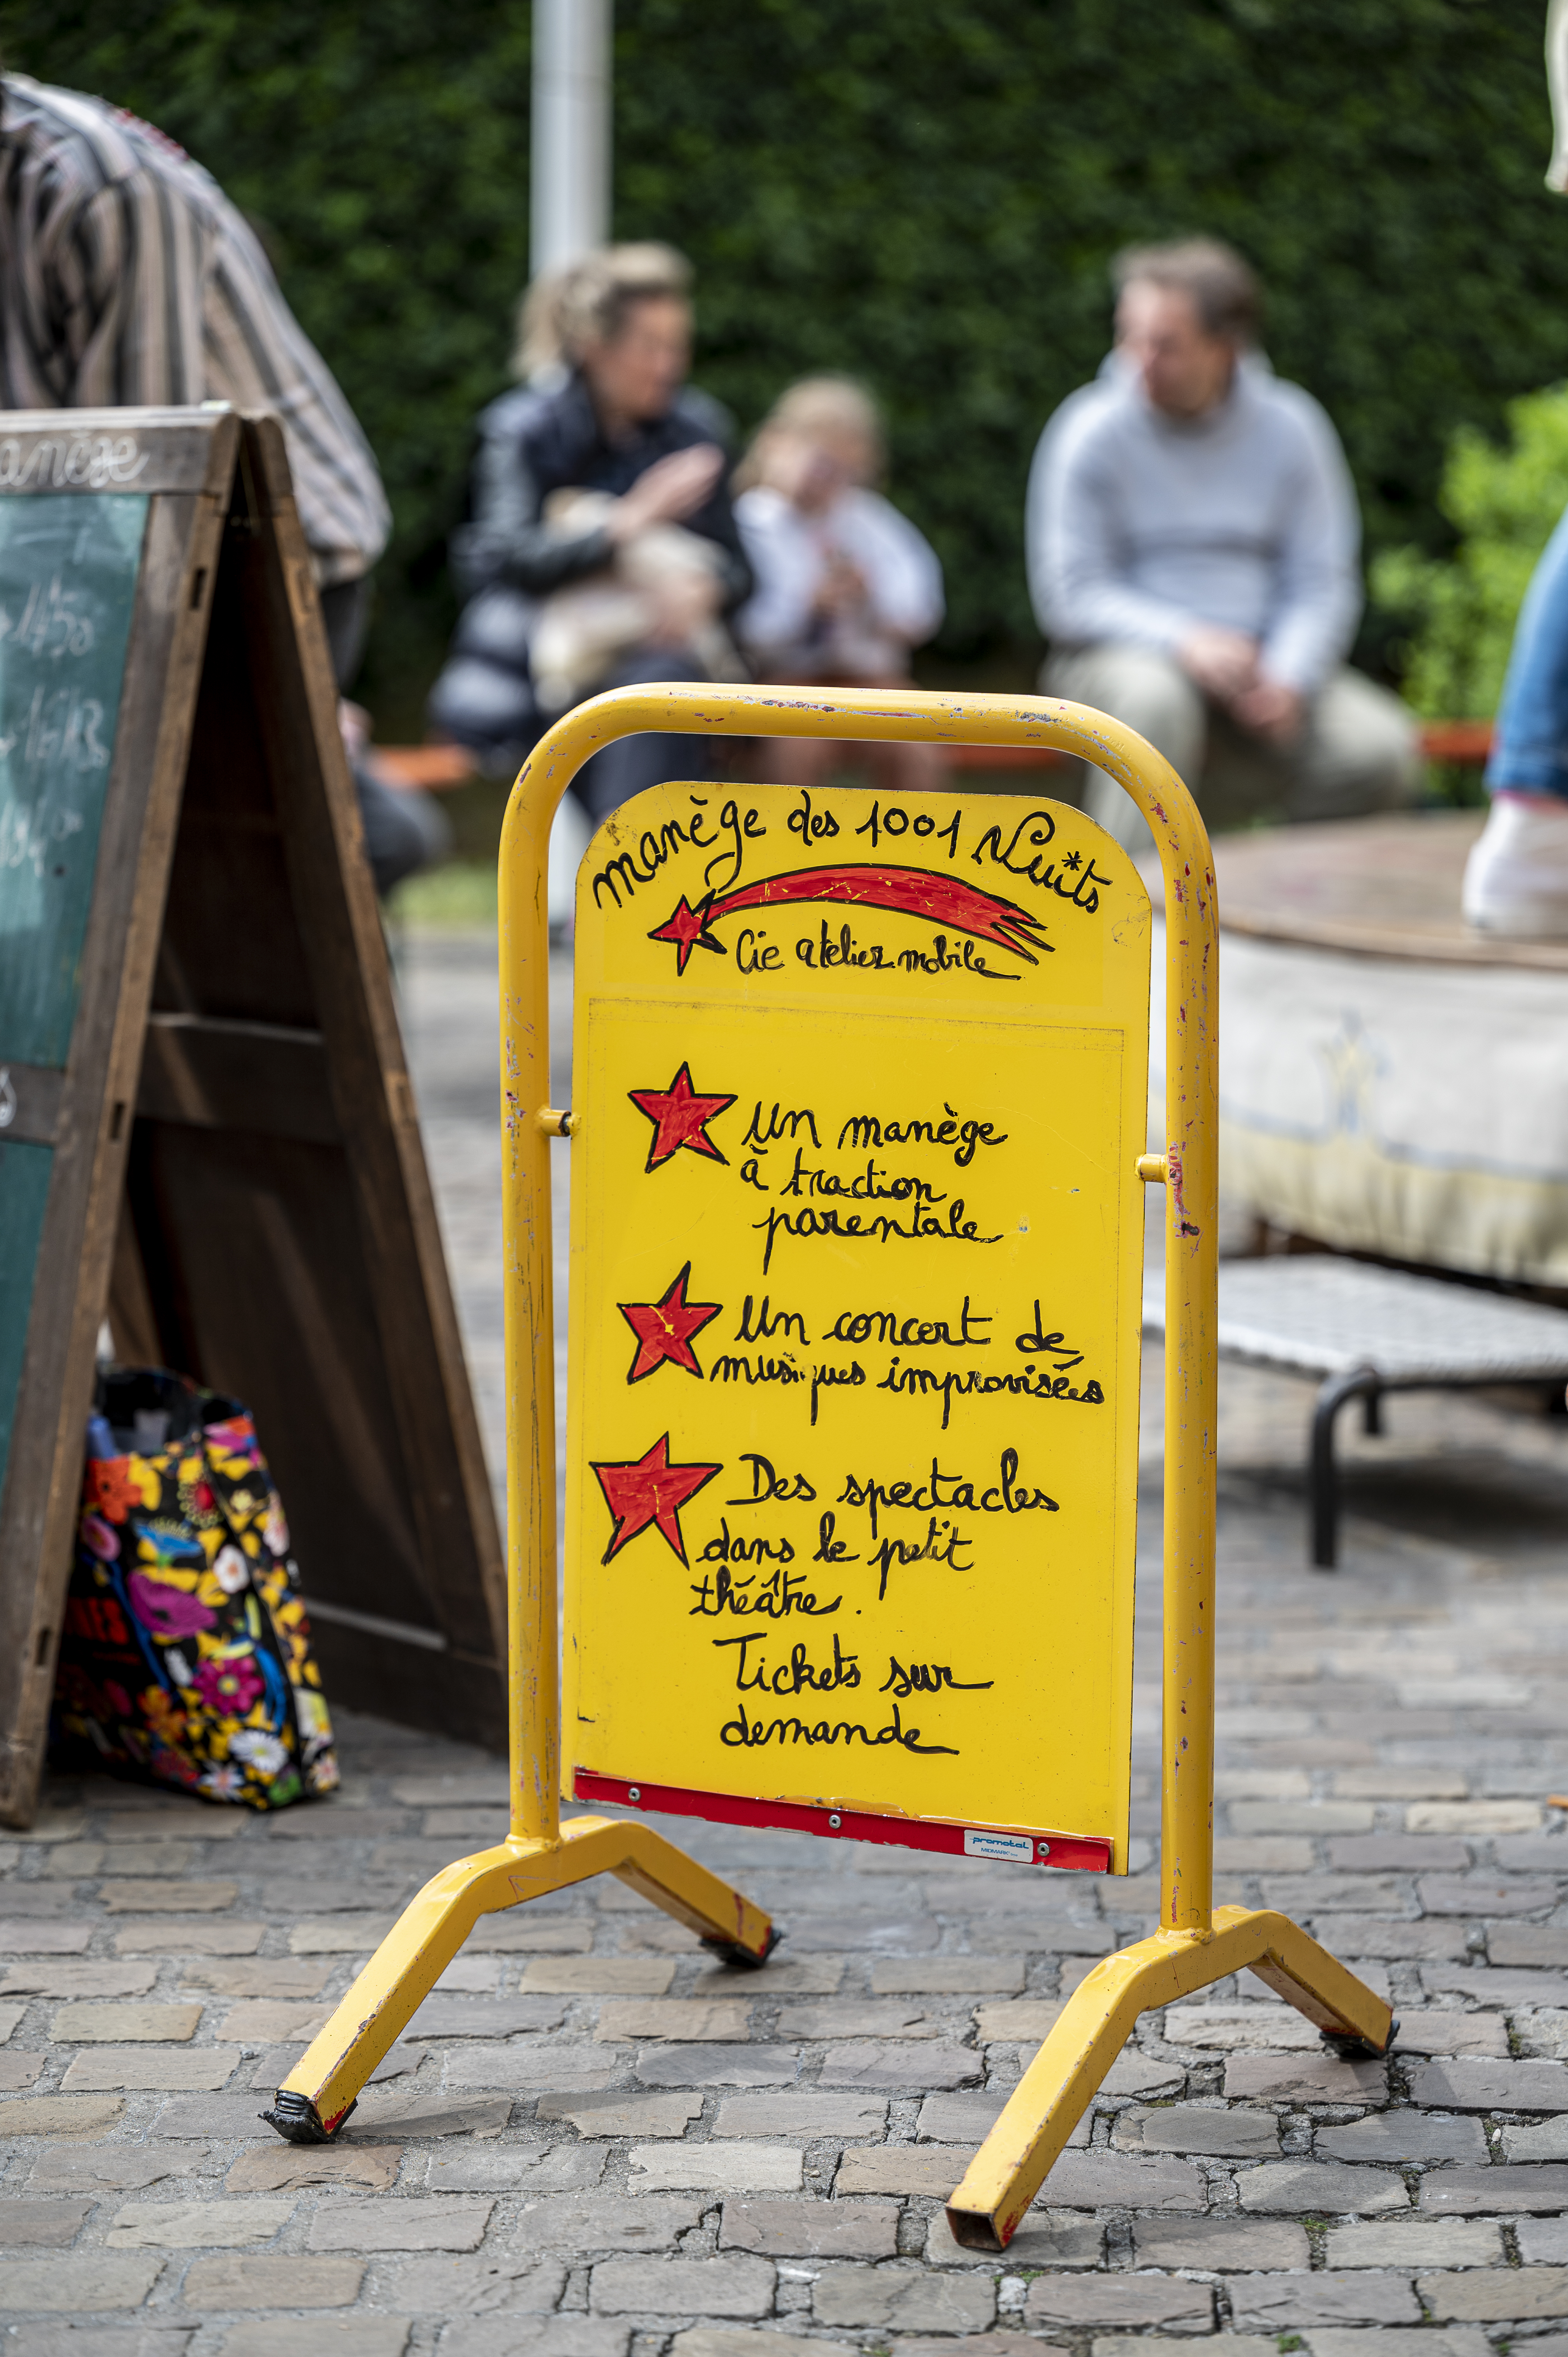 manège des 1001 Nuits
Cie atelier mobile
Un manège
à traction
parentale
Un concert de
musiques improvisées
Des spectacles
dans le petit
théâtre.
Tickets sur
demande
promotal
MIDMARK
anège